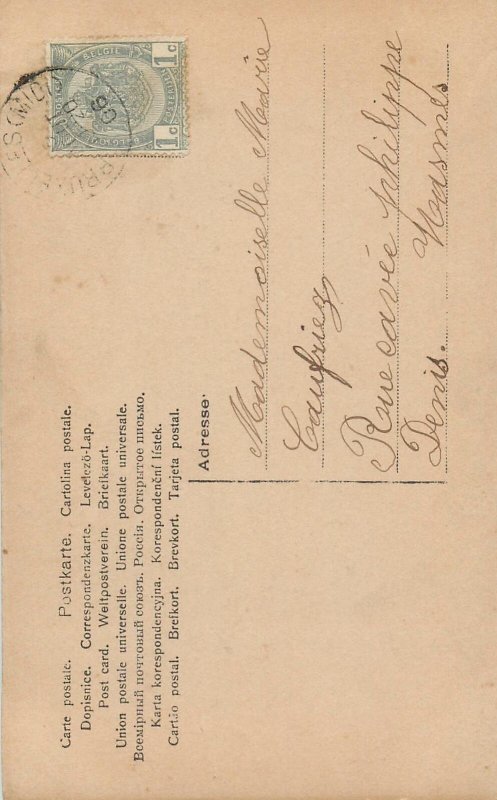 Carte postale. Postkarte. Cartolina postale.
Dopisnice. Correspondenzkarte. Levelező-Lap.
Post card. Weltpostverein. Briefkaart.
Union postale universelle. Unione postale universale.
Всемірный почтовый союзъ. Россия. Открытое письмо.
Karta korespondencyjna. Korespondenční lístek.
Cartão postal. Brefkort. Brevkort. Tarjeta postal.
BELGIE
1c 1c
(MIDI)
Adresse:
Mademoiselle Marie
Caufriez
Rue cavée philippe
Denis. Wasmes